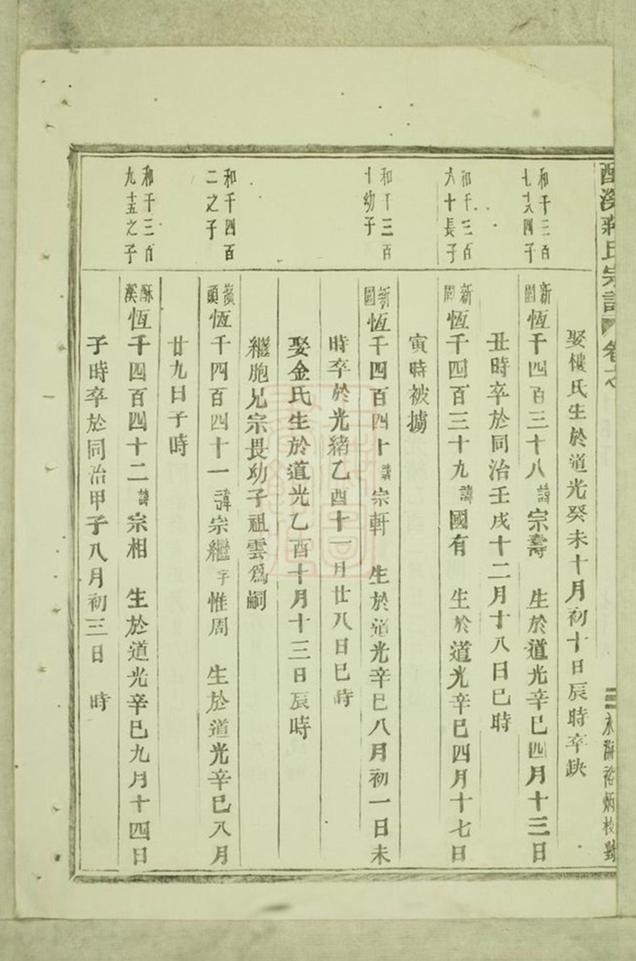 蔣氏宗譜 卷之
娶樓氏生於道光癸未十月初十日辰時卒缺
和千三百
七 四子
新
恆千四百三十八諱宗壽 生於道光辛巳四月十三日
丑時卒於同治壬戌十二月十八日巳時
和千三百
六十長子
新
恆千四百三十九諱國有 生於道光辛巳四月十七日
寅時被擄
和千三百
十幼子
新
恆千四百四十諱宗軒 生於道光辛巳八月初一日未
時卒於光緒乙酉十一月廿八日巳時
娶金氏生於道光乙酉十月十三日辰時
繼胞兄宗畏幼子祖雲為嗣
和千四百
二之子
嶺頭
恆千四百四十一諱宗繼字惟周 生於道光辛巳八月
廿九日子時
和千三百
九十五之子
酥溪
恆千四百四十二諱宗相 生於道光辛巳九月十四日
子時卒於同治甲子八月初三日 時